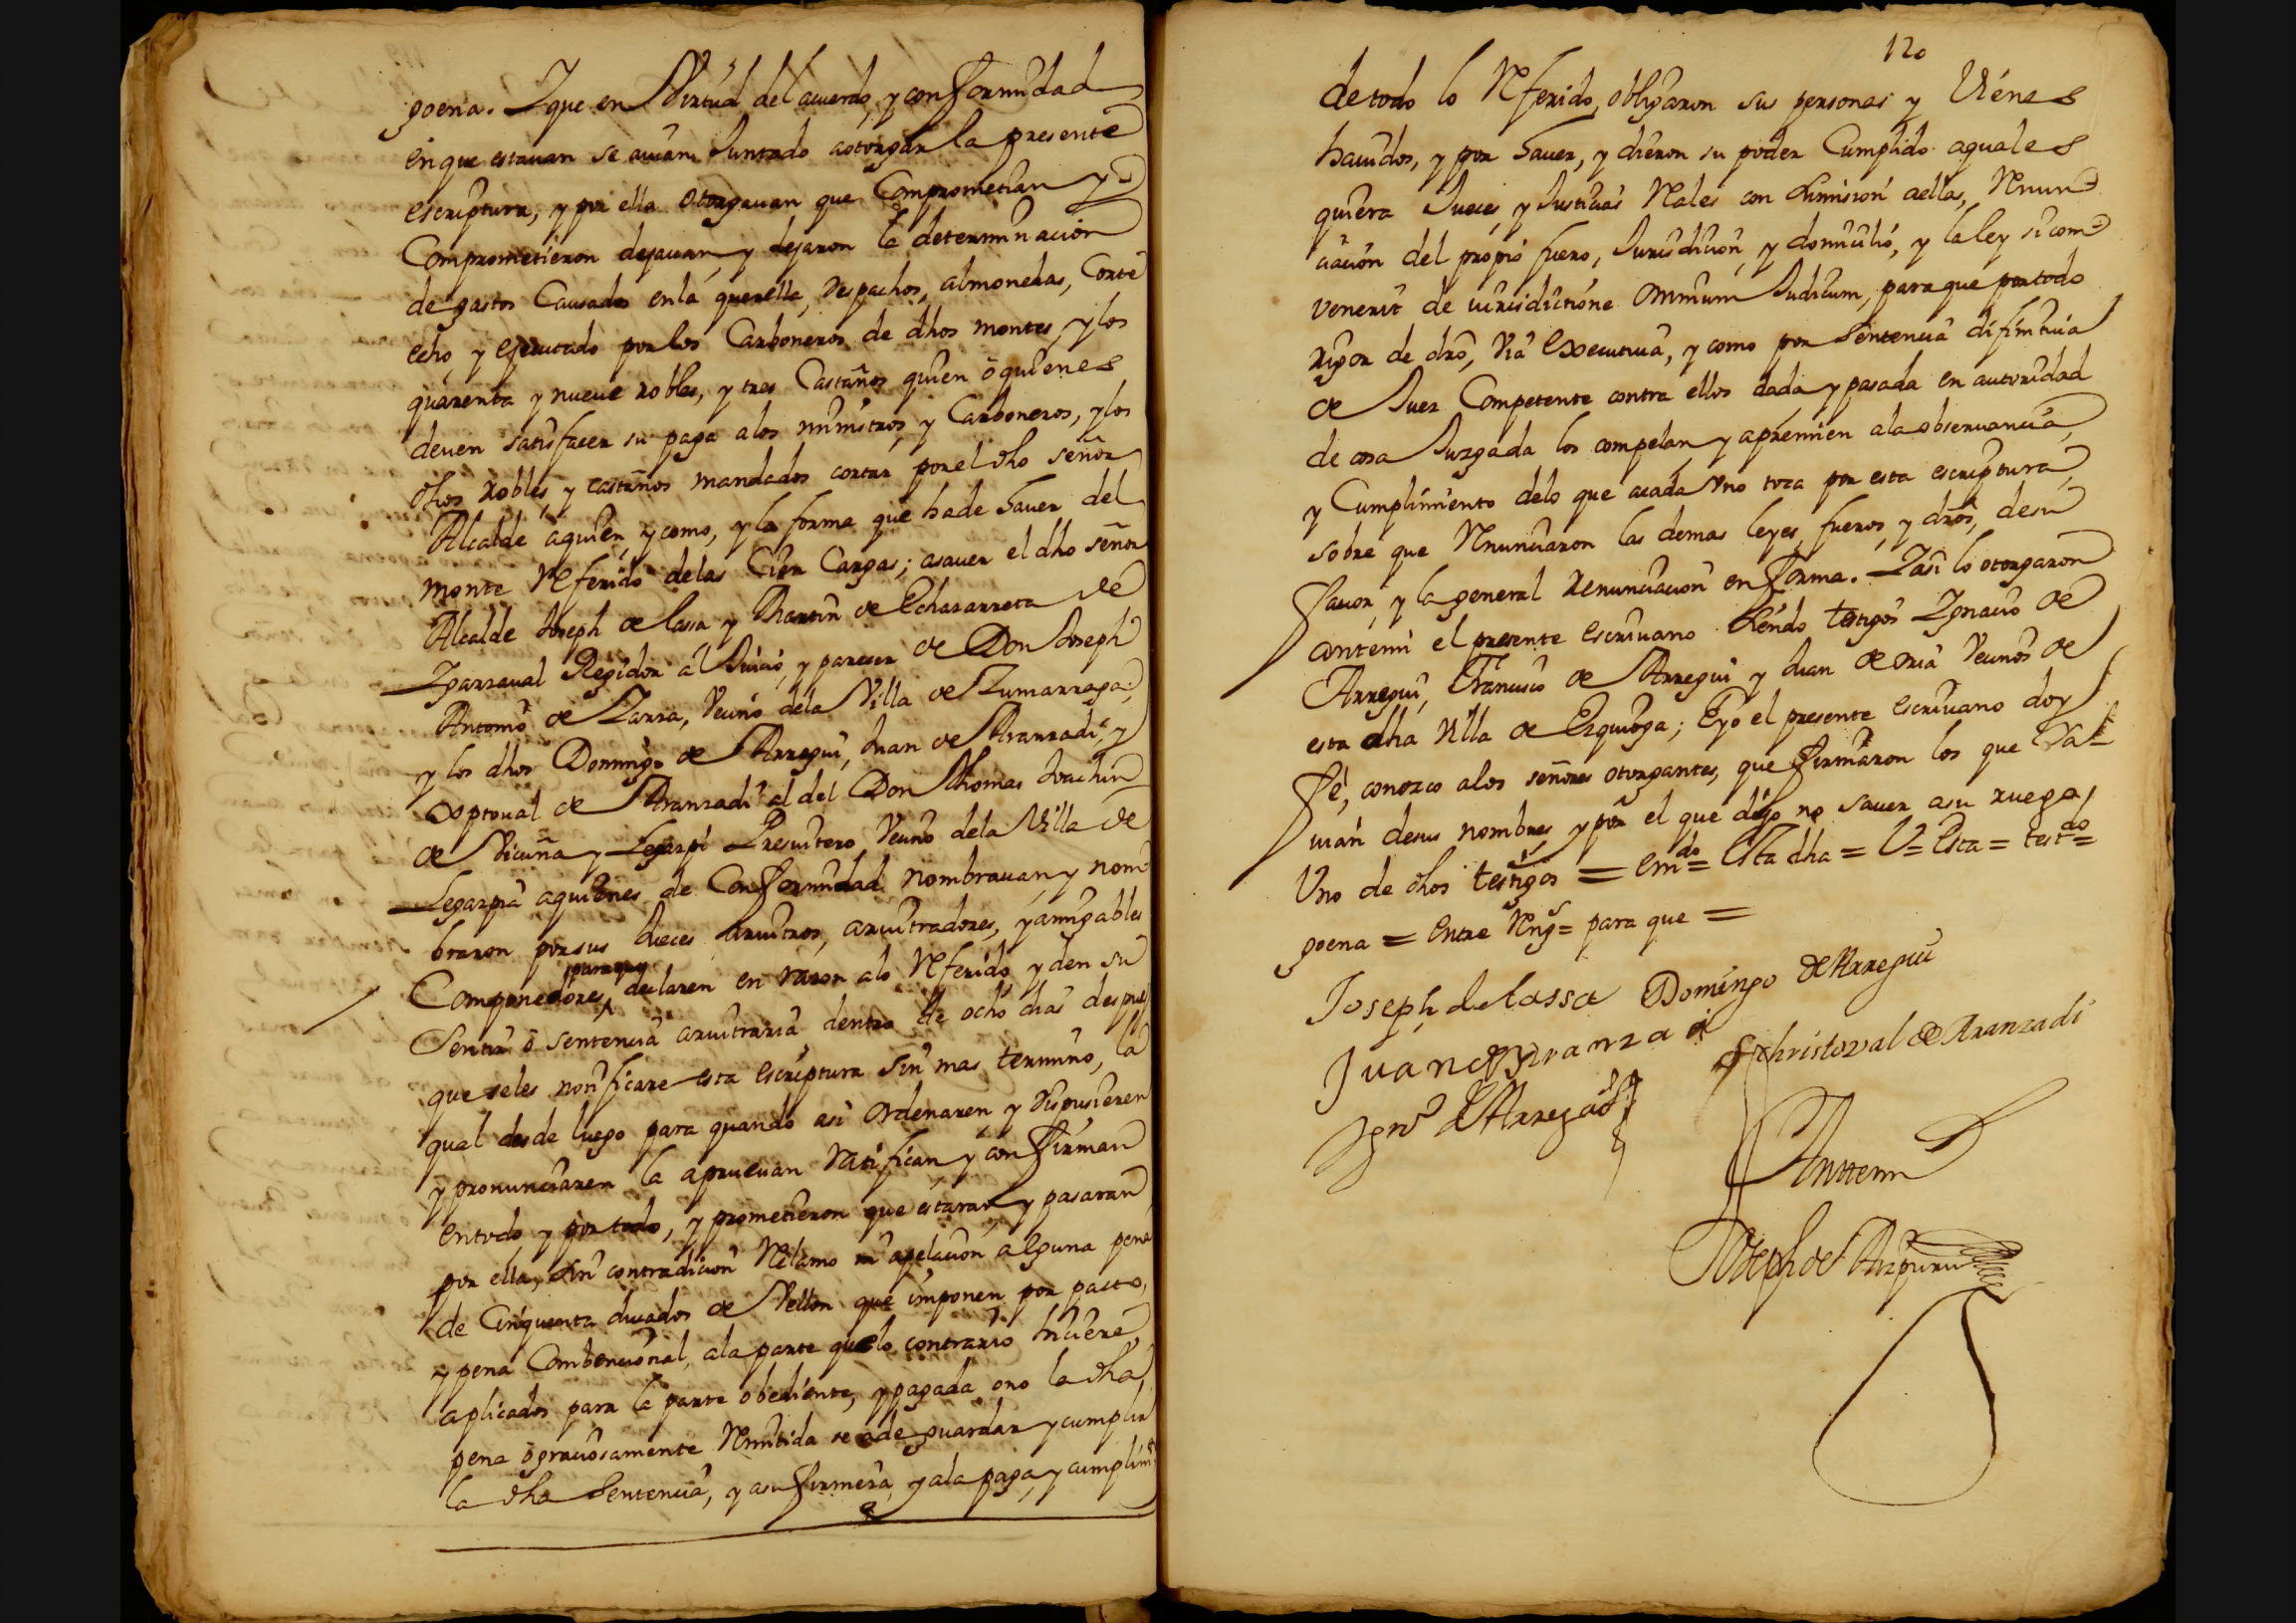 goena. Y que en Virtud del acuerdo, y conformidad
en que estauan se auian Juntado aotorgar la presente
escriptura, y por ella otorgauan que Comprometian y
Comprometieron dejauan y dejaron la determinacion
de gastos Causados enla querella, despachos, almonedas, Corte
echo, y ejecutado por los Carboneros de dhos montes, y los
quarenta y nueue robles, y tres Castaños quien ó quienes
deuen satisfacer su paga alos ministros, y Carboneros, y los
dhos robles, y castaños mandados cortar por el dho señor
Alcalde aquien, y como, y la forma que hade hauer del
monte Referido delas Cien Cargas; asauer el dho señor
Alcalde Joseph de Lassa y Martin de Echasarreta de
Yzarraual Regidor al Juicio, y parecer de Don Joseph
Antonio de Zarra, Vecino dela Villa de Zumarraga;
y los dhos Domingo de Arregui, Juan de Aranzadi, y
Xptoual de Aranzadi al del Don Thomas Joachin
de Vicuña y Legarpi Presuitero, Vecino dela Villa de
Legarpia aquienes de Conformidad nombrauan, y nom
braron por sus Jueces aruitros, aruitradores, y amigables
paraque
Componedores, declaren en razon alo Referido, y den su
Sentir ó sentencia aruitraria dentro de ocho dias despues
que seles notificare esta escriptura sin mas termino, la
qual desde luego para quando asi ordenaren y dispusieren
y pronunciaren la aprueuan ratifican, y confirman
entodo, y por todo, y prometieron que estaran y pasaran
por ella, sin contradicion Reclamo ni apelacion alguna pena
de Cinquenta ducados de Vellon que imponen por pacto,
y pena Combencional, ala parte quelo contrario hiciere,
aplicados para la parte obediente, y pagada, ono la dha
pena ó graciosamente Remitida se ade guardar y cumplir
la dha Sentencia, y asu firmeza, y ala paga, y cumplim
120
de todo lo Referido, obligaron sus personas y Vienes
hauidos, y por hauer, y dieron su poder Cumplido aquales
quiera Jueces, y Justicias Reales con sumision aellas, Renun
ciacion del propio fuero, Jurisdicion, y domicilio, y la ley si com
venerit de iurisdictione omnium Judicum, para que por todo
rigor de dro, Via executiua, y como por sentencia difinitiua
de Juez Competente contra ellos dada y pasada en autoridad
de cosa Juzgada los compelan y apremien ala obseruancia,
y Cumplimiento delo que acada Uno toca por esta escriptura,
sobre que Renunciaron las demas leyes, fueros, y dros, desu
fauor, y la general renunciacion en forma. Y asi lo otorgaron
antemi el presente escriuano siendo testigos Ygnacio de
Arregui, Francisco de Arregui y Juan de oria Vecinos de
esta dha Villa de Ezquioga; E yo el presente escriuano doy
fé, conozco alos señores otorgantes, que firmaron los que sa
uian desus nombres, y por el que dijo no sauer asu ruego,
Uno de dhos testigos = em.do = esta dha = V = esta = test.do =
goena = Entre Reng.s = para que =
Joseph de Lassa Domingo de Arregui
Juan de Aranzadi Christoval de Aranzadi
Ygn.o de Arregui
Anttemi
Joseph de Aizpuru